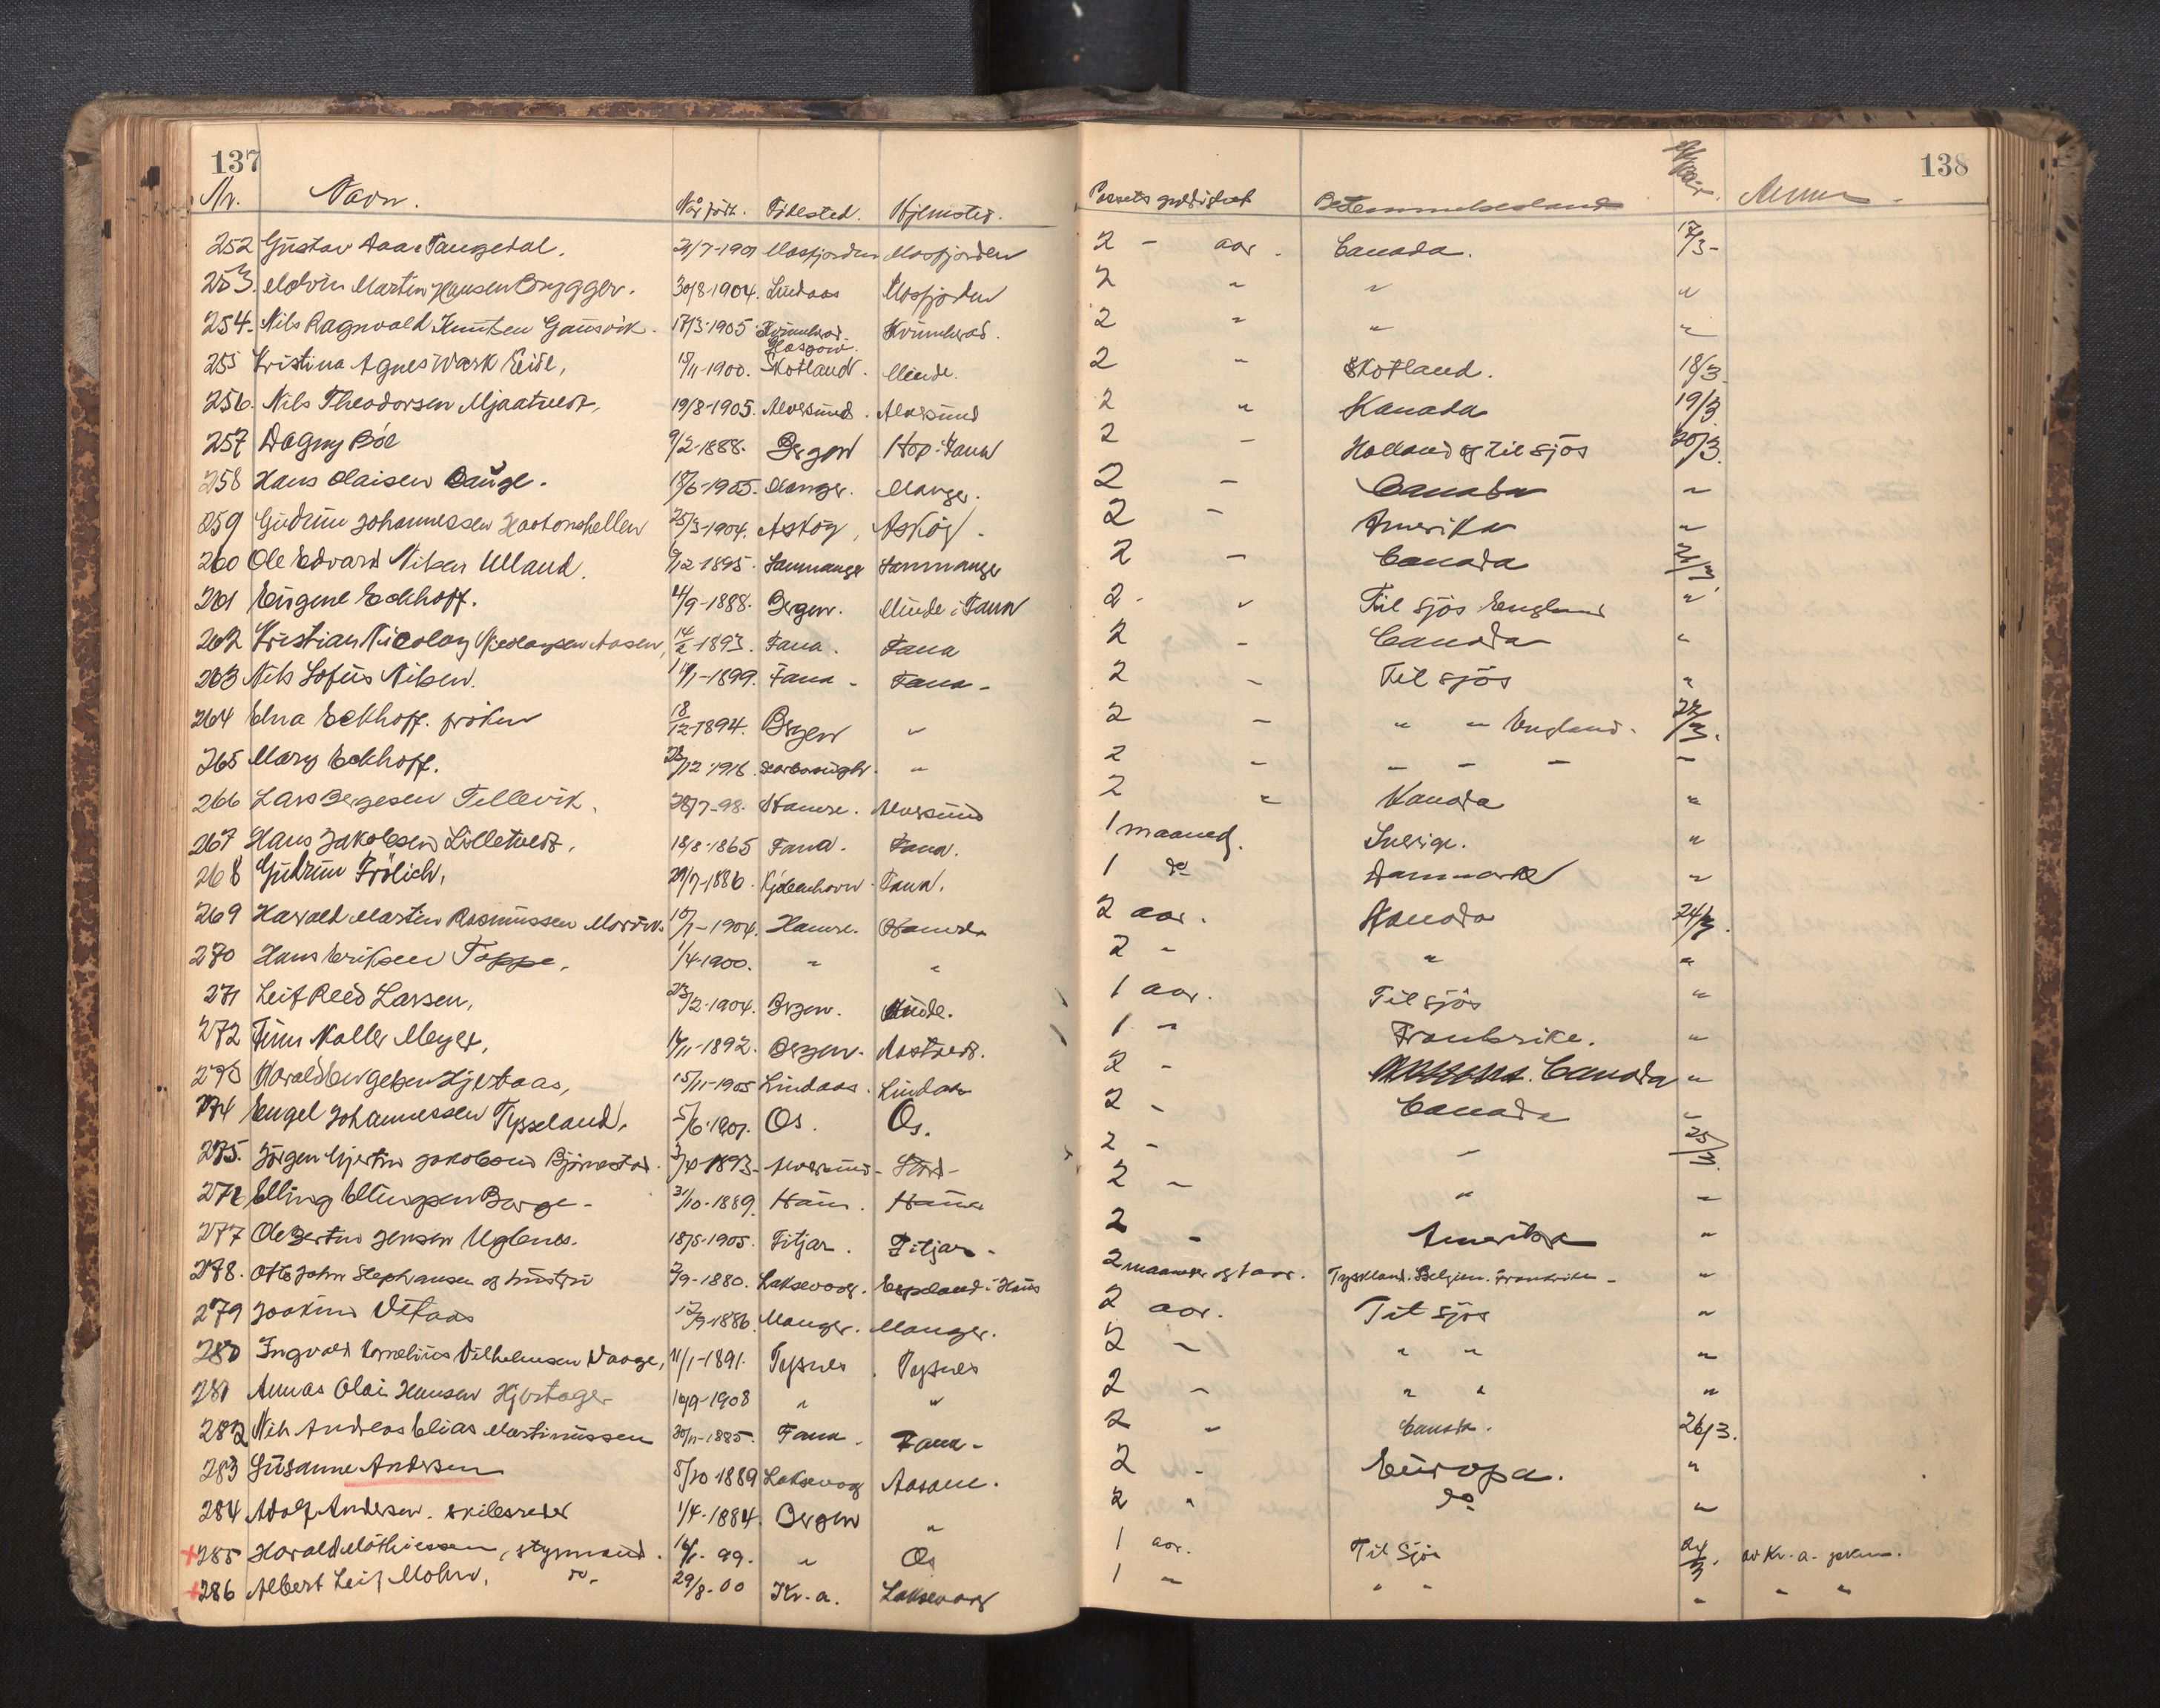 137 138
Nr. Navn. Når født. Fødested. Hjemsted. Passets gyldighet Bestemmelsesland Anm
252 Gustav Aaae Tangedal. 21/7-1901 Masfjorden Masfjorden 2 - aar. Canada. 17/3-
253. Martin Hansen Brygger. 30/8-1904. Lindaas Masfjorden 2 " " "
254. Nils Ragnvald Knutsen Gausvik. 17/3-1905 Kvinnherad. Kvinnherad. 2 " " "
Glasgow.
255 Kristina Agnes Wark Eide, /11-1900. Skotland. Minde. 2 " Skotland. 18/3.
256. Nils Theodorsen Mjaatvedt, 19/8-1905. Alversund. Alversund 2 " Kanada 19/3.
257 Dagny Böe 9/2-1888. Bergen Hop i Fana 2 - Holland og til sjøs 20/3.
258 Hans Olaisen Bauge. 18/6-1905. Manger. Manger. 2 - Canada "
259 Gudrun Johannessen Hortonshellen 25/3-1904. Askøy, Askøy. 2 - Amerika "
260 Ole Edvard Nilsen Ulland. 9/12-1895. Samnanger Samnanger 2 - Canada 21/3
261 Eugene Eckhoff. 4/9-1888. Bergen. Minde i Fana 2 - " Til sjøs England "
262 Kristian Nicolay Nicolaysen Aasen, 14/2-1893. Fana. Fana 2 - Canada "
263 Nils Sofus Nilsen. 14/1-1899. Fana - Fana - 2 - Til sjøs "
264 Edna Eckhoff. frøken 18/12-1894. Bergen " 2 - " " England. 22/3.
265 Mary Eckhoff. 22/12-1916. Scarborough. " 2 - - - - "
266 Lars Bergesen Tellevik. 28/7-98. Hamre. Alversund 2 " Kanada "
267 Hans Jakobsen Lilletvedt. 18/8-1865 Fana. Fana. 1 maaned. Sverige. "
268 Gudrun Frölich, 29/7-1886. Kjøbenhavn. Fana. 1 do Danmark "
269 Harald Martin Rasmussen Morvik. 10/1-1904. Hamre. Hamre 2 aar. Kanada 24/3.
270 Hans Eriksen Toppe, 1/4-1900. " " 2 - " "
271 Leif Reed Larsen, 23/2-1904. Bergen. Minde. 1 aar. Til sjøs "
272 Finn Kaller Meyer, 14/11-1892. Bergen. Nesttvedt. 1 - Frankrike. "
273 Harald Bergesen Hjertaas, 15/11-1905 Lindaas. Lindaas 2 - Canada "
274 Engel Johannessen Tysseland, 5/6-1901. Os. Os. 2 - Canada "
275. Jørgen Hjertin Jakobsen Bjørnestad. 3/10-1893 - Alversund - Stord - 2 - " 25/3.
276 Elling Ellingsen Borge - 31/10-1889. Haus. Haus 2 - " "
277 Ole Bertin Jensen Uglenes. 18/5-1905. Fitjar. Fitjar - 2 - Amerika "
278. Otto John Stephansen og hustru 2/9-1880. Laksevaag. Espeland i Haus 2 maaneder og 1 aar. Tyskland. Belgien. Frankrike - "
279 Joakim Vetaas 12/9-1886. Manger. Manger. 2 aar. Til sjøs "
280 Ingvald Kornelius Vilhelmsen Vaage, 11/1-1891. Tysnes. Tysnes 2 - " " "
281 Annas Olai Hansen Hjertager 16/9-1908 " " 2 - " " "
282 Nils Andreas Elias Martinussen 30/11-1885. Fana. Fana - 2 " Canada. 26/3.
283 Susanne Andersen 5/10-1889 Laksevaag Aasane. 2 - Europa. "
284 Adolf Andersen. skibsreder 1/4-1884. Bergen " 2 " do "
+285 Harald Mathiessen, styrmand. 16/1-99. " Os 1 aar. Til Sjøs 24/3. av Kr.a.
+286 Albert Leif Mohn, do- 29/8-00 Kr.a. Laksevaag 1 - " " " " "